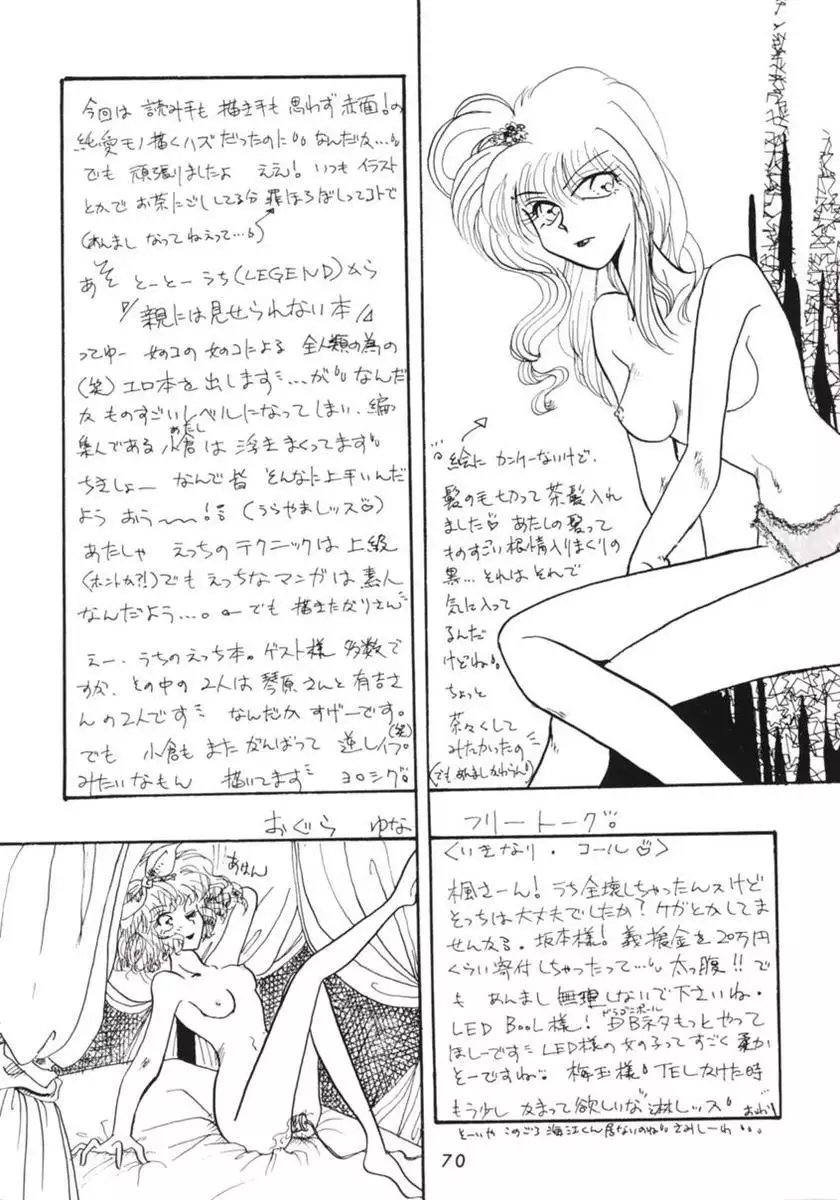 今回は 読み手も 描き手も 思わず 赤面!の
純愛モノ描くハズだったのに〃なんだか…〃
でも 頑張りましたよ ええ! いつも イラスト
とかで お茶にごししてる分 罪ほろぼしってコトで
(あんまし なってねえって…〃)
あそ とーとー うち(LEGEND)から
『親には見せられない本』
ってゆー 女のコの女のコによる 全人類の為の
(笑) エロ本を出します〃…が〃なんだ
か ものすごいレベルになってしまい、編
集人である小倉は 浮きまくってます〃
あたし
ちきしょー なんで 皆 そんなに上手いんだ
よう おう〜〜! (うらやましッス♡)
あたしゃ えっちのテクニックは 上級
(ホントか?!)でもえっちなマンガは 素人
なんだよう…。 でも 描きたがりさん〃
えー、うちのえっち本。ゲスト様 多数で
すが、その中の2人は 琴原さんと有吉さ
んの2人です〃 なんだか すげーです。
でも 小倉も またがんばって 逆レイプ(笑)
みたいなもん 描いてます〃 ヨロシグ〃
絵に カンケーないけど、
髪の毛切って 茶髪入れ
ました♡ あたしの髪って
ものすごい 根情入りまくりの
黒… それは それで
気に入って
るんだ
けどね〃
ちょっと
茶々くして
みたかったの
(でもあんましかわらん)
おぐら ゆな フリートーク〃
<いきなり・コール♡>
楓さーん! うち全壊しちゃったんスけど
そっちは大丈夫でしたか? ケガとかしてま
せんかる。坂本様! 義援金を20万円
くらい寄付しちゃったって…〃 太っ腹!! で
も あんまし 無理しないで下さいね・
ドラゴンボール
LED BOOL様! DBネタもっとやって
ほしーです〃 LED様の女の子ってすごく 柔か
そーですね〃 梅玉様〃 TELかけた時
もう少し かまって欲しいな〃 淋しッス〃 おわり
そーいや このごろ 海江くん居ないのね〃さみしーわ〃。
あはん
70